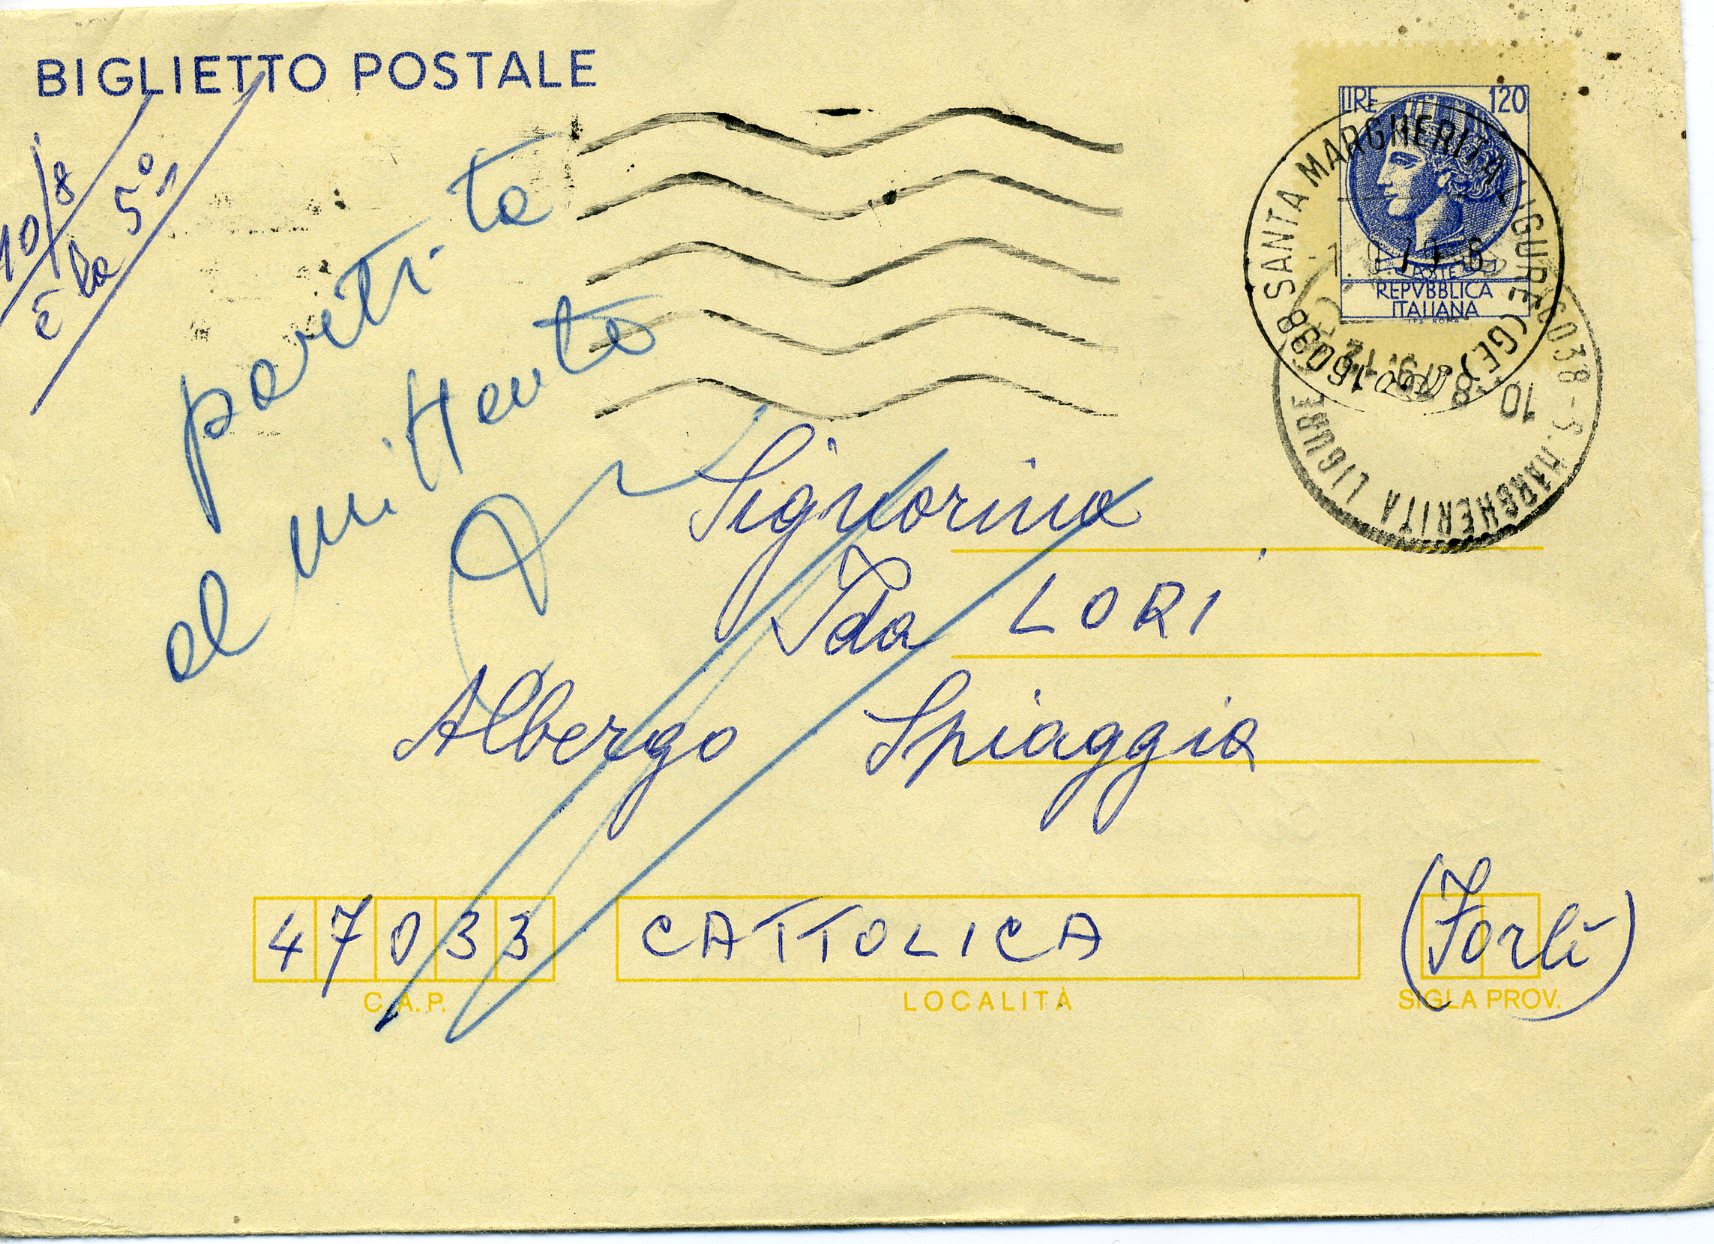 BIGLIETTO POSTALE
10/8
è la 5°
partita
al mittente
LIRE 120
POSTE
REPVBBLICA
ITALIANA
16038 SANTA MARGHERITA LIGURE (GE)
16038 - S. MARGHERITA LIGURE
10 -8 79.12
Signorina
Ida LORI
Albergo Spiaggia
47033 CATTOLICA (Forlì)
C.A.P. LOCALITÀ SIGLA PROV.